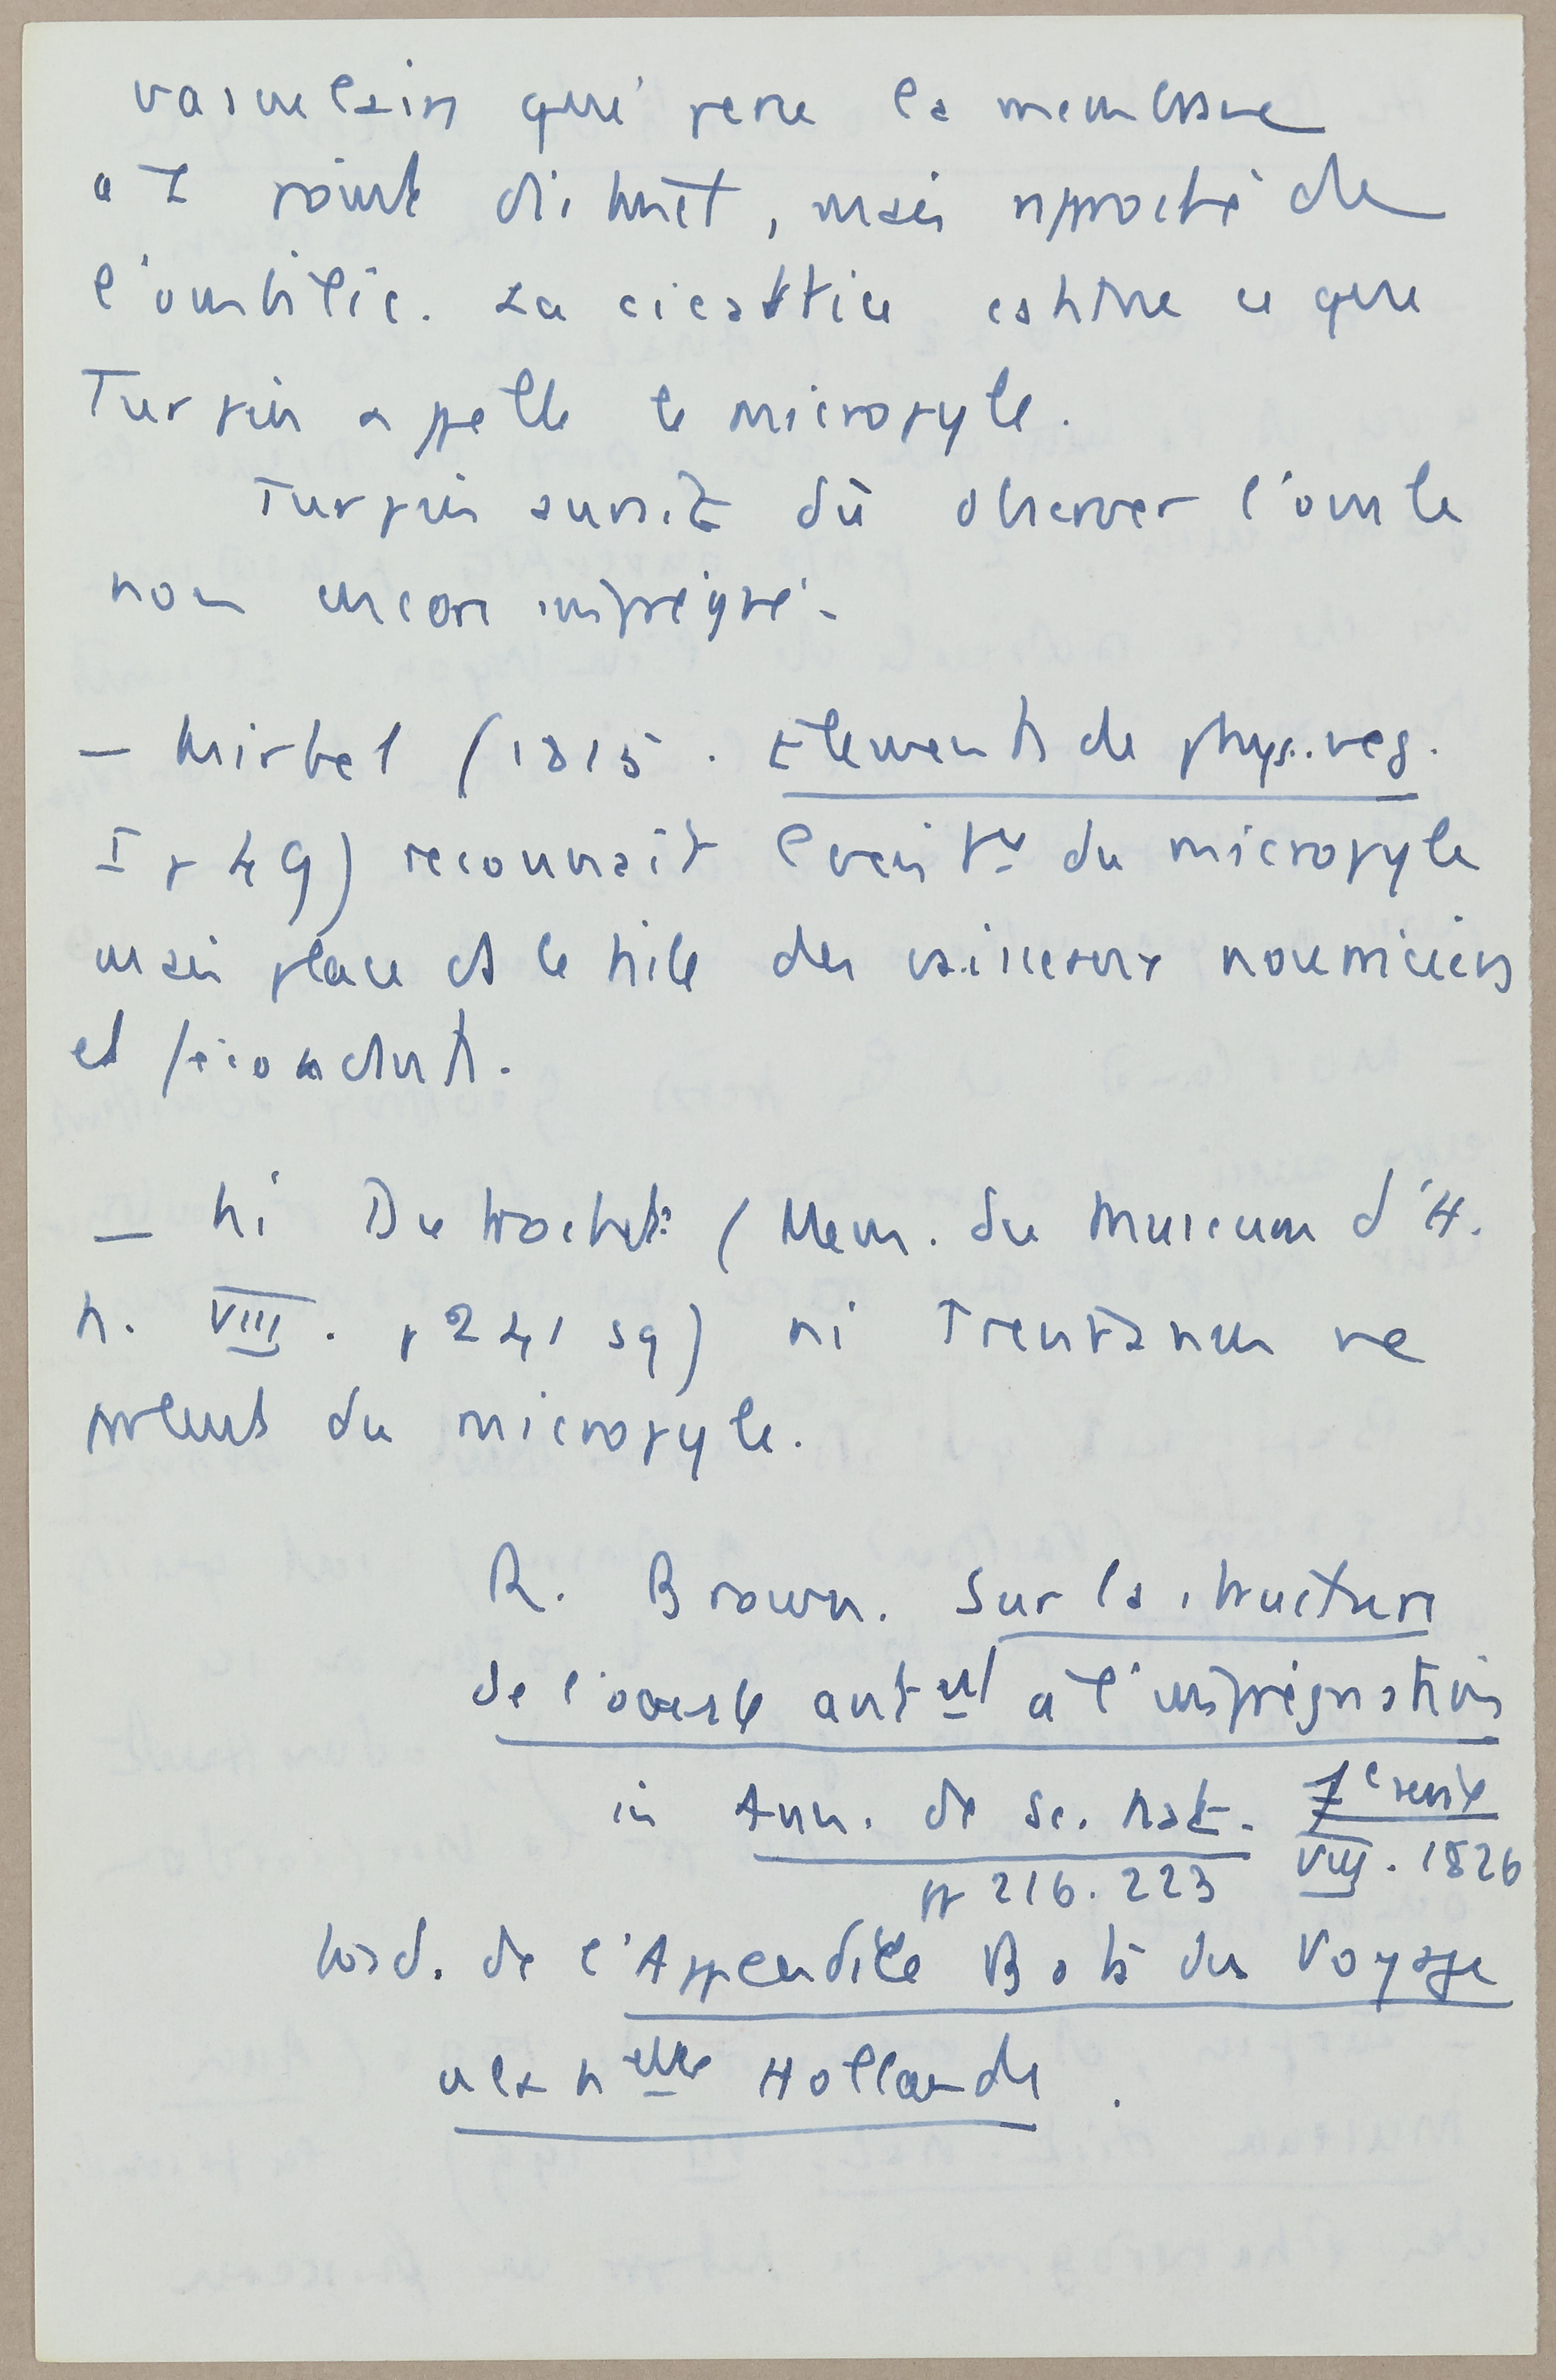 vasculaire qui perce la membrane
a 1 point distinct, mais rapproché de
l'ombilic. La cicatrice est ce que
Turpin appelle le micropyle.
Turpin aurait dû observer l'ovule
non encore imprégné.
— Mirbel (1815. Elements de phys. veg.
I p 49) reconnait l'exist ce du micropyle
mais place ds le hile des vaisseaux nourriciers
et fécondants.
— Ni Dutrochet (Mem. du Museum d'H.
N. VIII. p 241 sq) ni Treviranus ne
parlent du micropyle.
R. Brown. Sur la structure
de l'ovule ant ent a l'imprégnation
in Ann. de Sc. Nat. 1e serie
VIII. 1826
pp 216. 223
trad. de l'Appendice Bot. du Voyage
a la N elle Hollande.